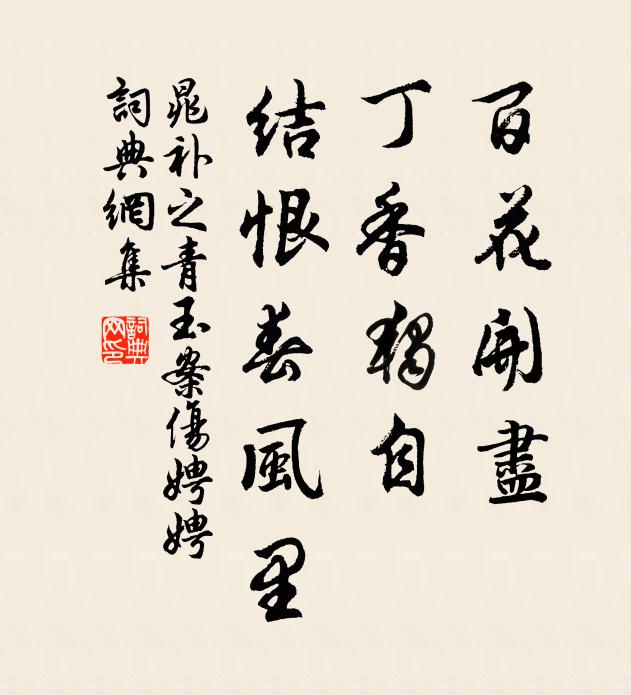 百花開盡
丁香獨自
結恨春風里
晁补之青玉案傷娉娉
詞典網集
詞典网印